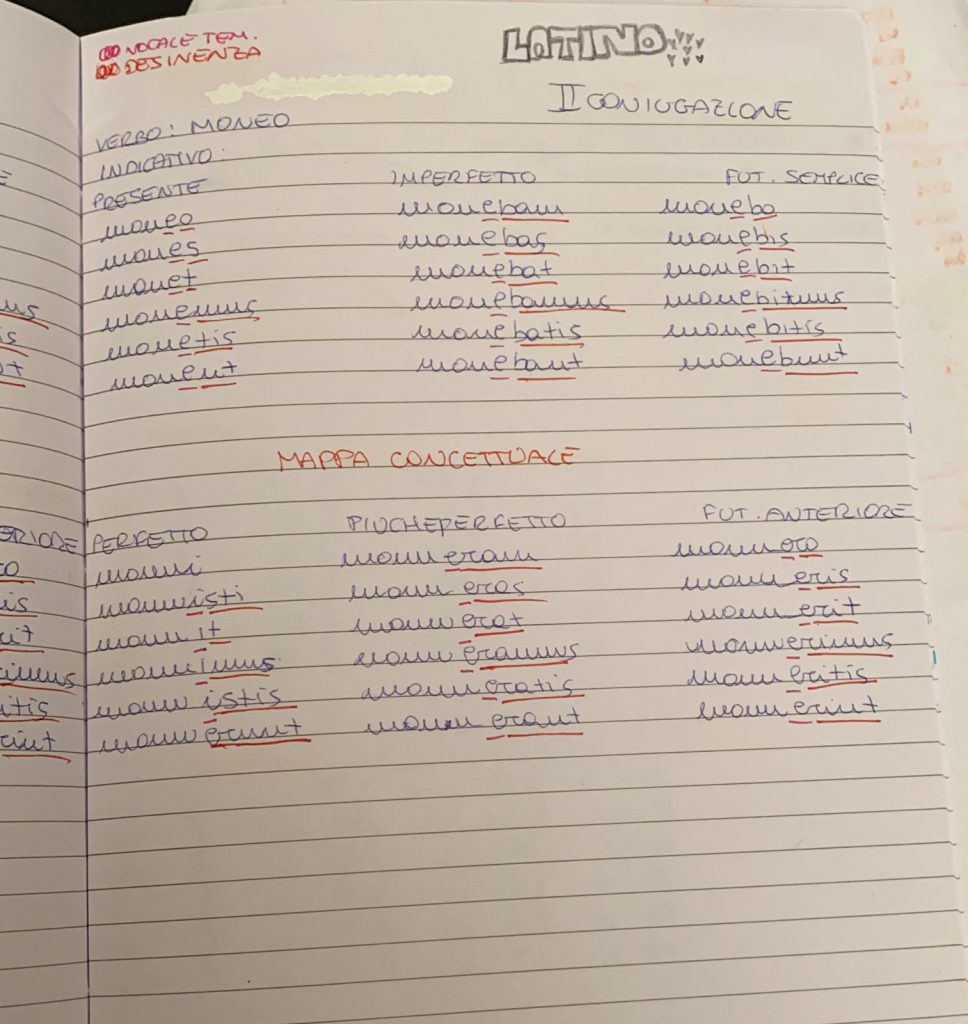 VOCALE TEM.
DESINENZA
LATINO
II CONIUGAZIONE
VERBO: MONEO
INDICATIVO:
PRESENTE IMPERFETTO FUT. SEMPLICE
moneo monebam monebo
mones monebas monebis
monet monebat monebit
monemus monebamus monebimus
monetis monebatis monebitis
monent monebant monebunt
MAPPA CONCETTUALE
PERFETTO PIUCHEPERFETTO FUT. ANTERIORE
monui monueram monuero
monuisti monueras monueris
monuit monuerat monuerit
monuimus monueramus monuerimus
monuistis monueratis monueritis
monuerunt monuerant monuerint